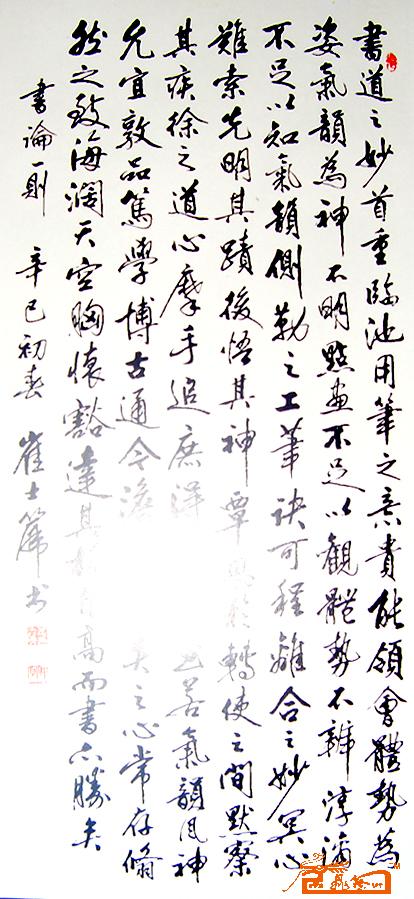 書道之妙首重臨池用筆之意貴能領會體勢為
姿氣韻為神不明點畫不足以觀體勢不辨淳漓
不足以知氣韻側勒之工筆訣可程離合之妙冥心
難索先明其蹟後悟其神覃思於轉使之間默察
其疾徐之道心摩手追庶得
若氣韻風神
允宜敦品篤學博古通今澹
美之心常存翛
然之致海濶天空胸懷豁達其
高而書亦勝矣
書論一則 辛巳初春 崔士篪书